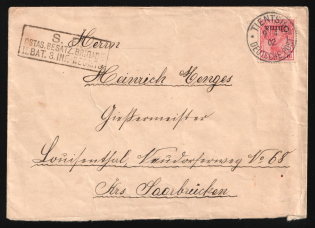 S.B.
OSTAS. BESATZ. BRIGADE
II. BAT. 3. INF. REGT.
TIENTSIN
DEUTSCHE POST
02
Herrn
Heinrich Menges
Gießermeister
Louisenthal, Vaudorserweg No 68
Krs Saarbrücken